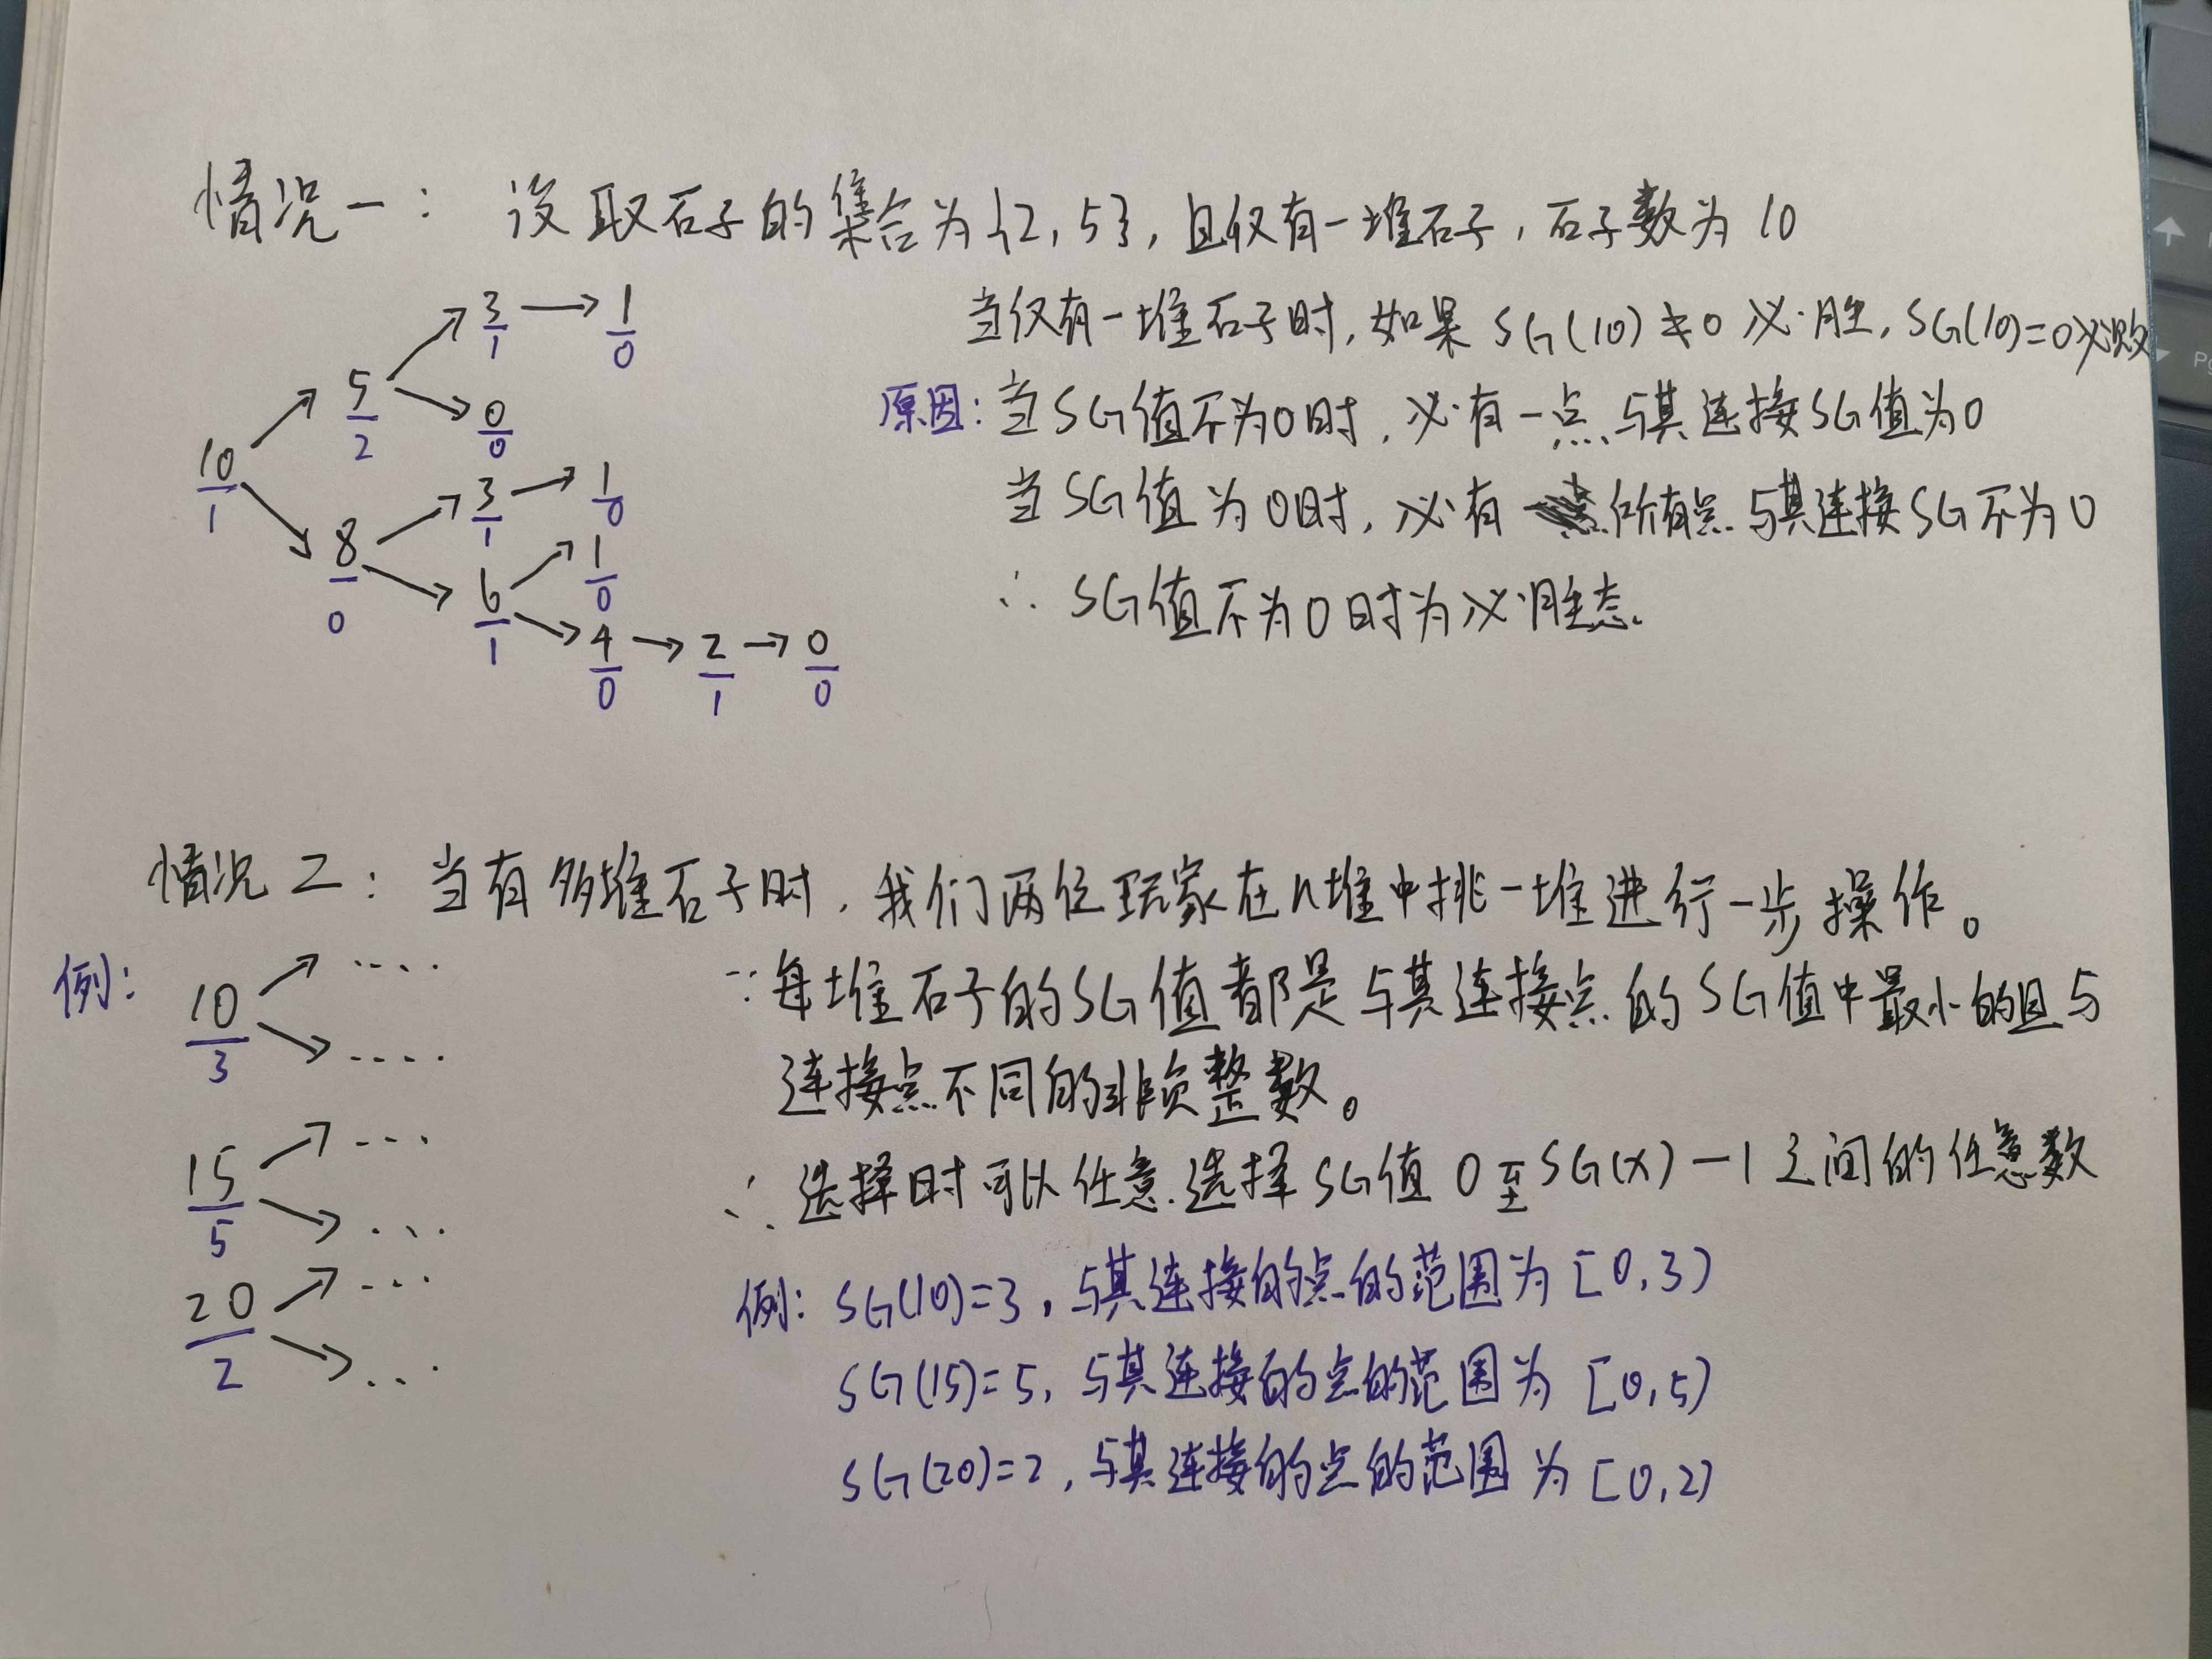 情况一: 设取石子的集合为{2,5},且仅有一堆石子,石子数为 10
当仅有一堆石子时,如果 SG(10)≠0 必胜,SG(10)=0必败
原因:当SG值不为0时,必有一点与其连接SG值为0
当SG值为0时,必有所有点与其连接SG不为0
∴ SG值不为0时为必胜态.
3 → 1
1 0
5 0
2 0
10 3 → 1
1 1 0
8 1
0 0
6
1
4 → 2 → 0
0 1 0
情况2: 当有多堆石子时,我们两位玩家在n堆中挑一堆进行一步操作。
例: 10 ····
3 ····
15 ···
5 ···
20 ···
2 ···
∵每堆石子的SG值都是与其连接点的SG值中最小的且与
连接点不同的非负整数。
∴ 选择时可以任意选择SG值0至SG(x)-1之间的任意数
例: SG(10)=3,与其连接的点的范围为[0,3)
SG(15)=5,与其连接的点的范围为[0,5)
SG(20)=2,与其连接的点的范围为[0,2)
Pg